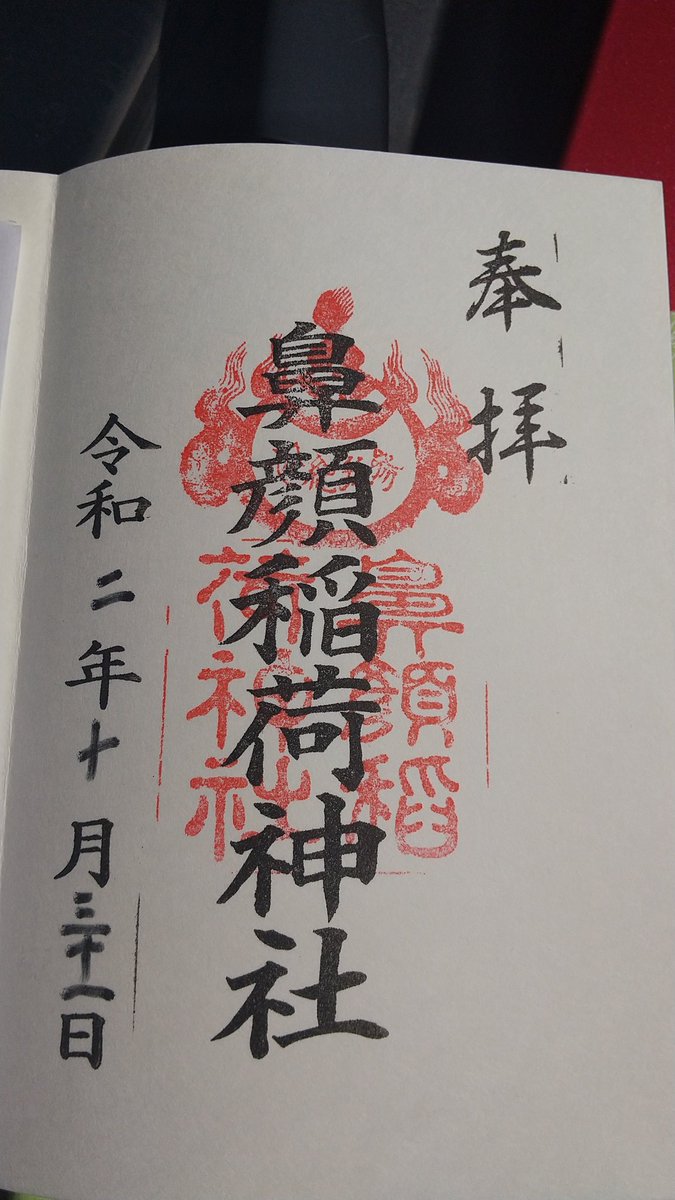 奉拝
鼻顔稲荷神社
鼻顔稲
荷神社
令和二年十月三十一日